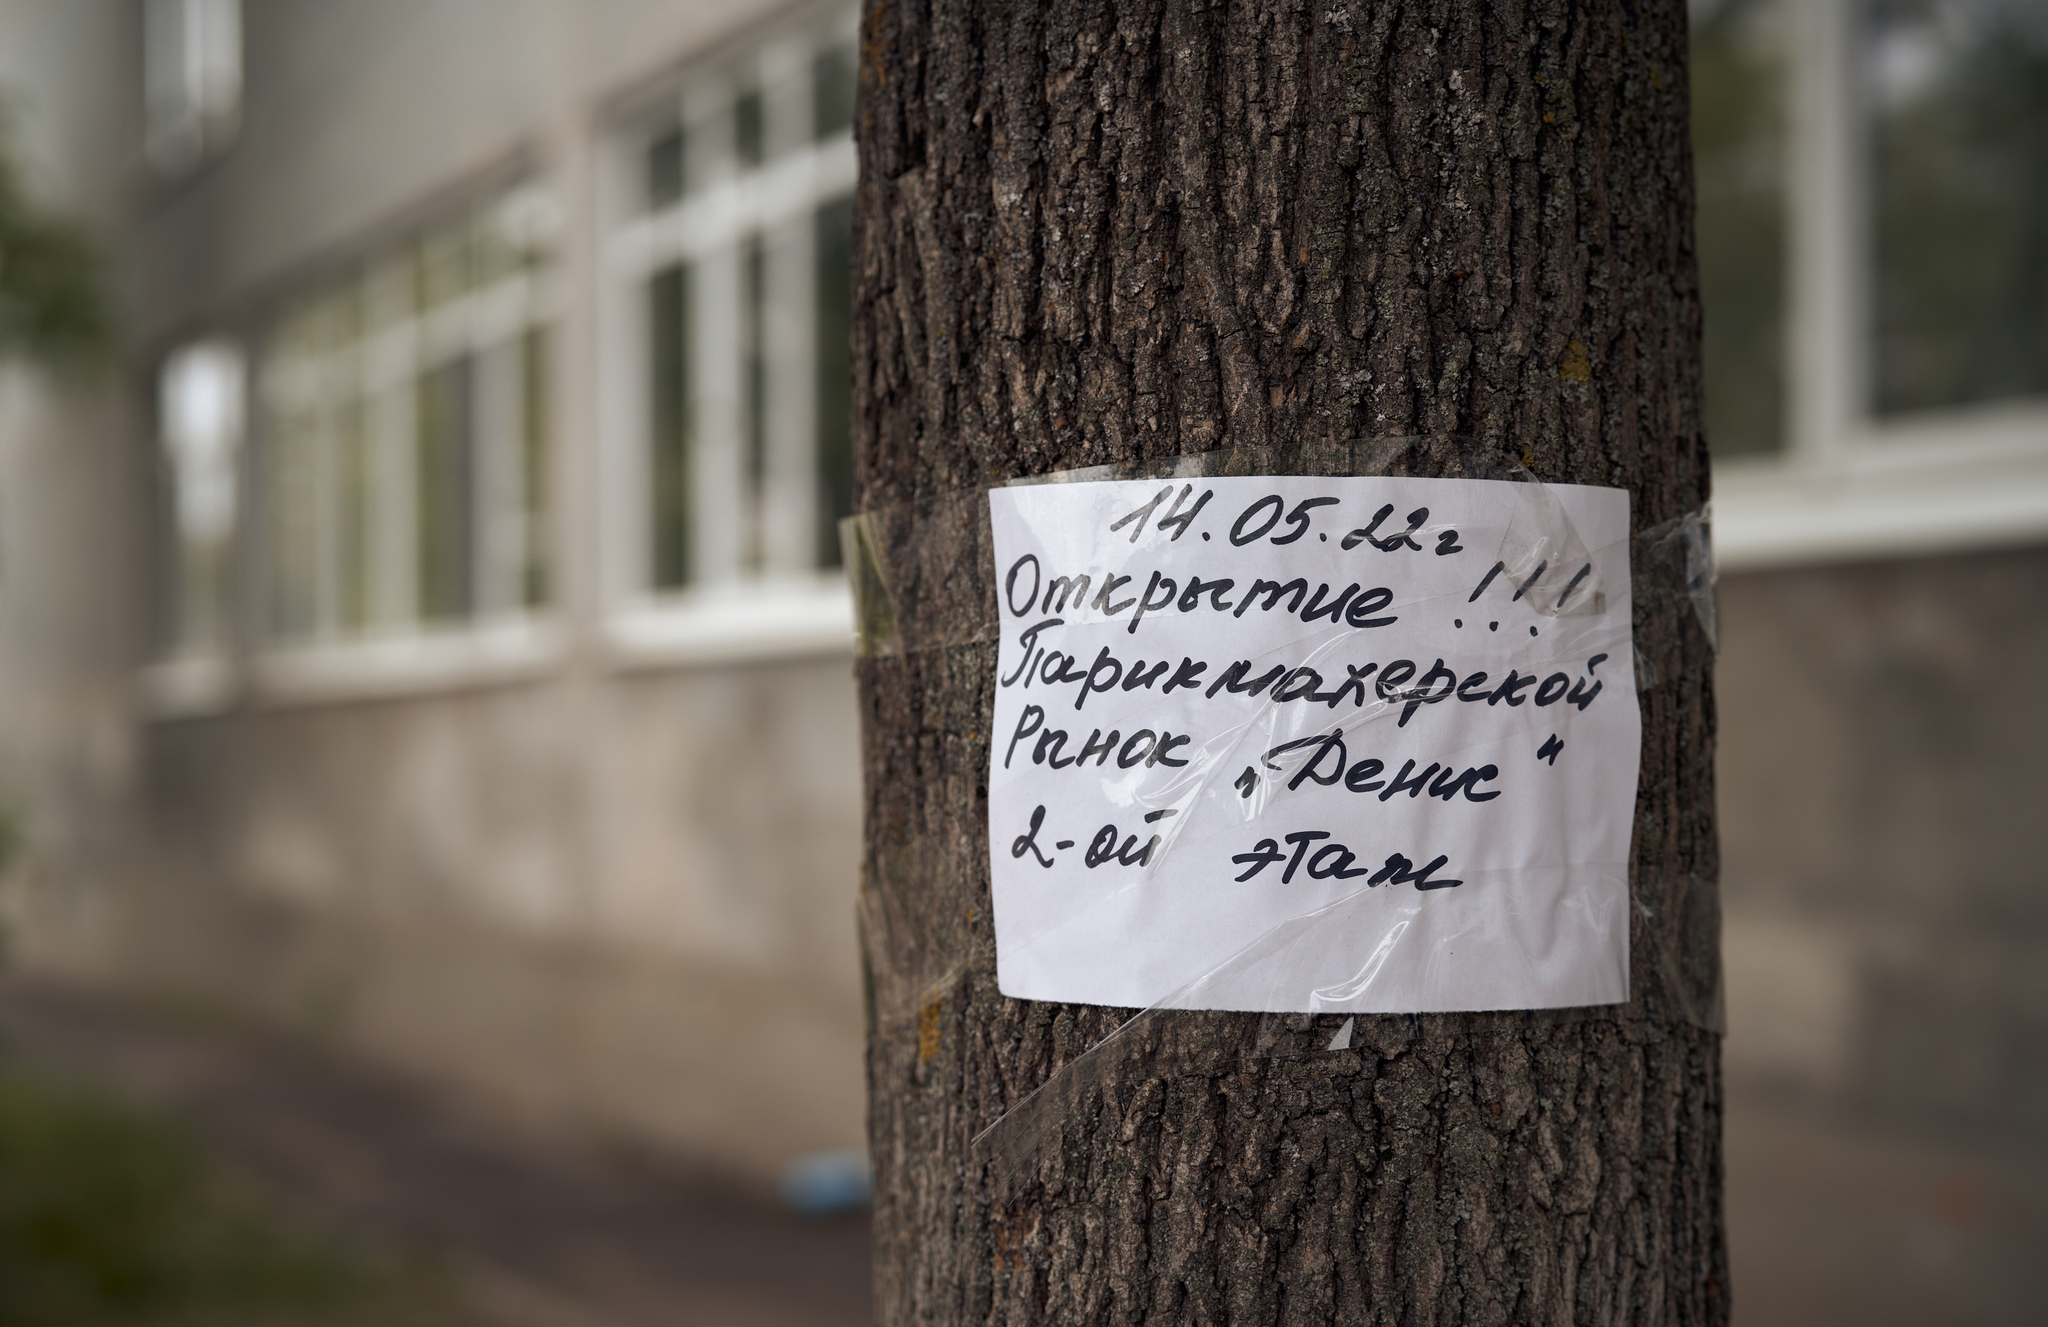 14.05.22г
Открытие !!!
Парикмахерской
Рынок „Денис“
2-ой этаж